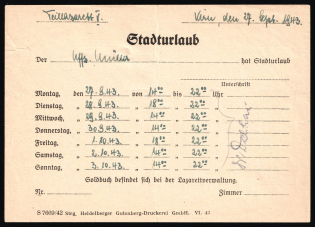 Teillazarett V. Wien, den 27. Sept. 1943.
Stadturlaub
Der Uffz. hat Stadturlaub
Unterschrift
Montag, den 27.9.43. von 14°° bis 22°° Uhr
Dienstag, „ 28.9.43. „ 18°° „ 22°° „
Mittwoch, „ 29.9.43. „ 14°° „ 22°° „
Donnerstag, „ 30.9.43. „ 14°° „ 22°° „
Freitag, „ 1.10.43. „ 18°° „ 22°° „
Samstag, „ 2.10.43. „ 14°° „ 22°° „
Sonntag, „ 3.10.43. „ 14°° „ 22°° „
Soldbuch befindet sich bei der Lazarettverwaltung.
Nr. Zimmer
S 7669/42 Stzg. Heidelberger Gutenberg-Druckerei GmbH. VI. 42